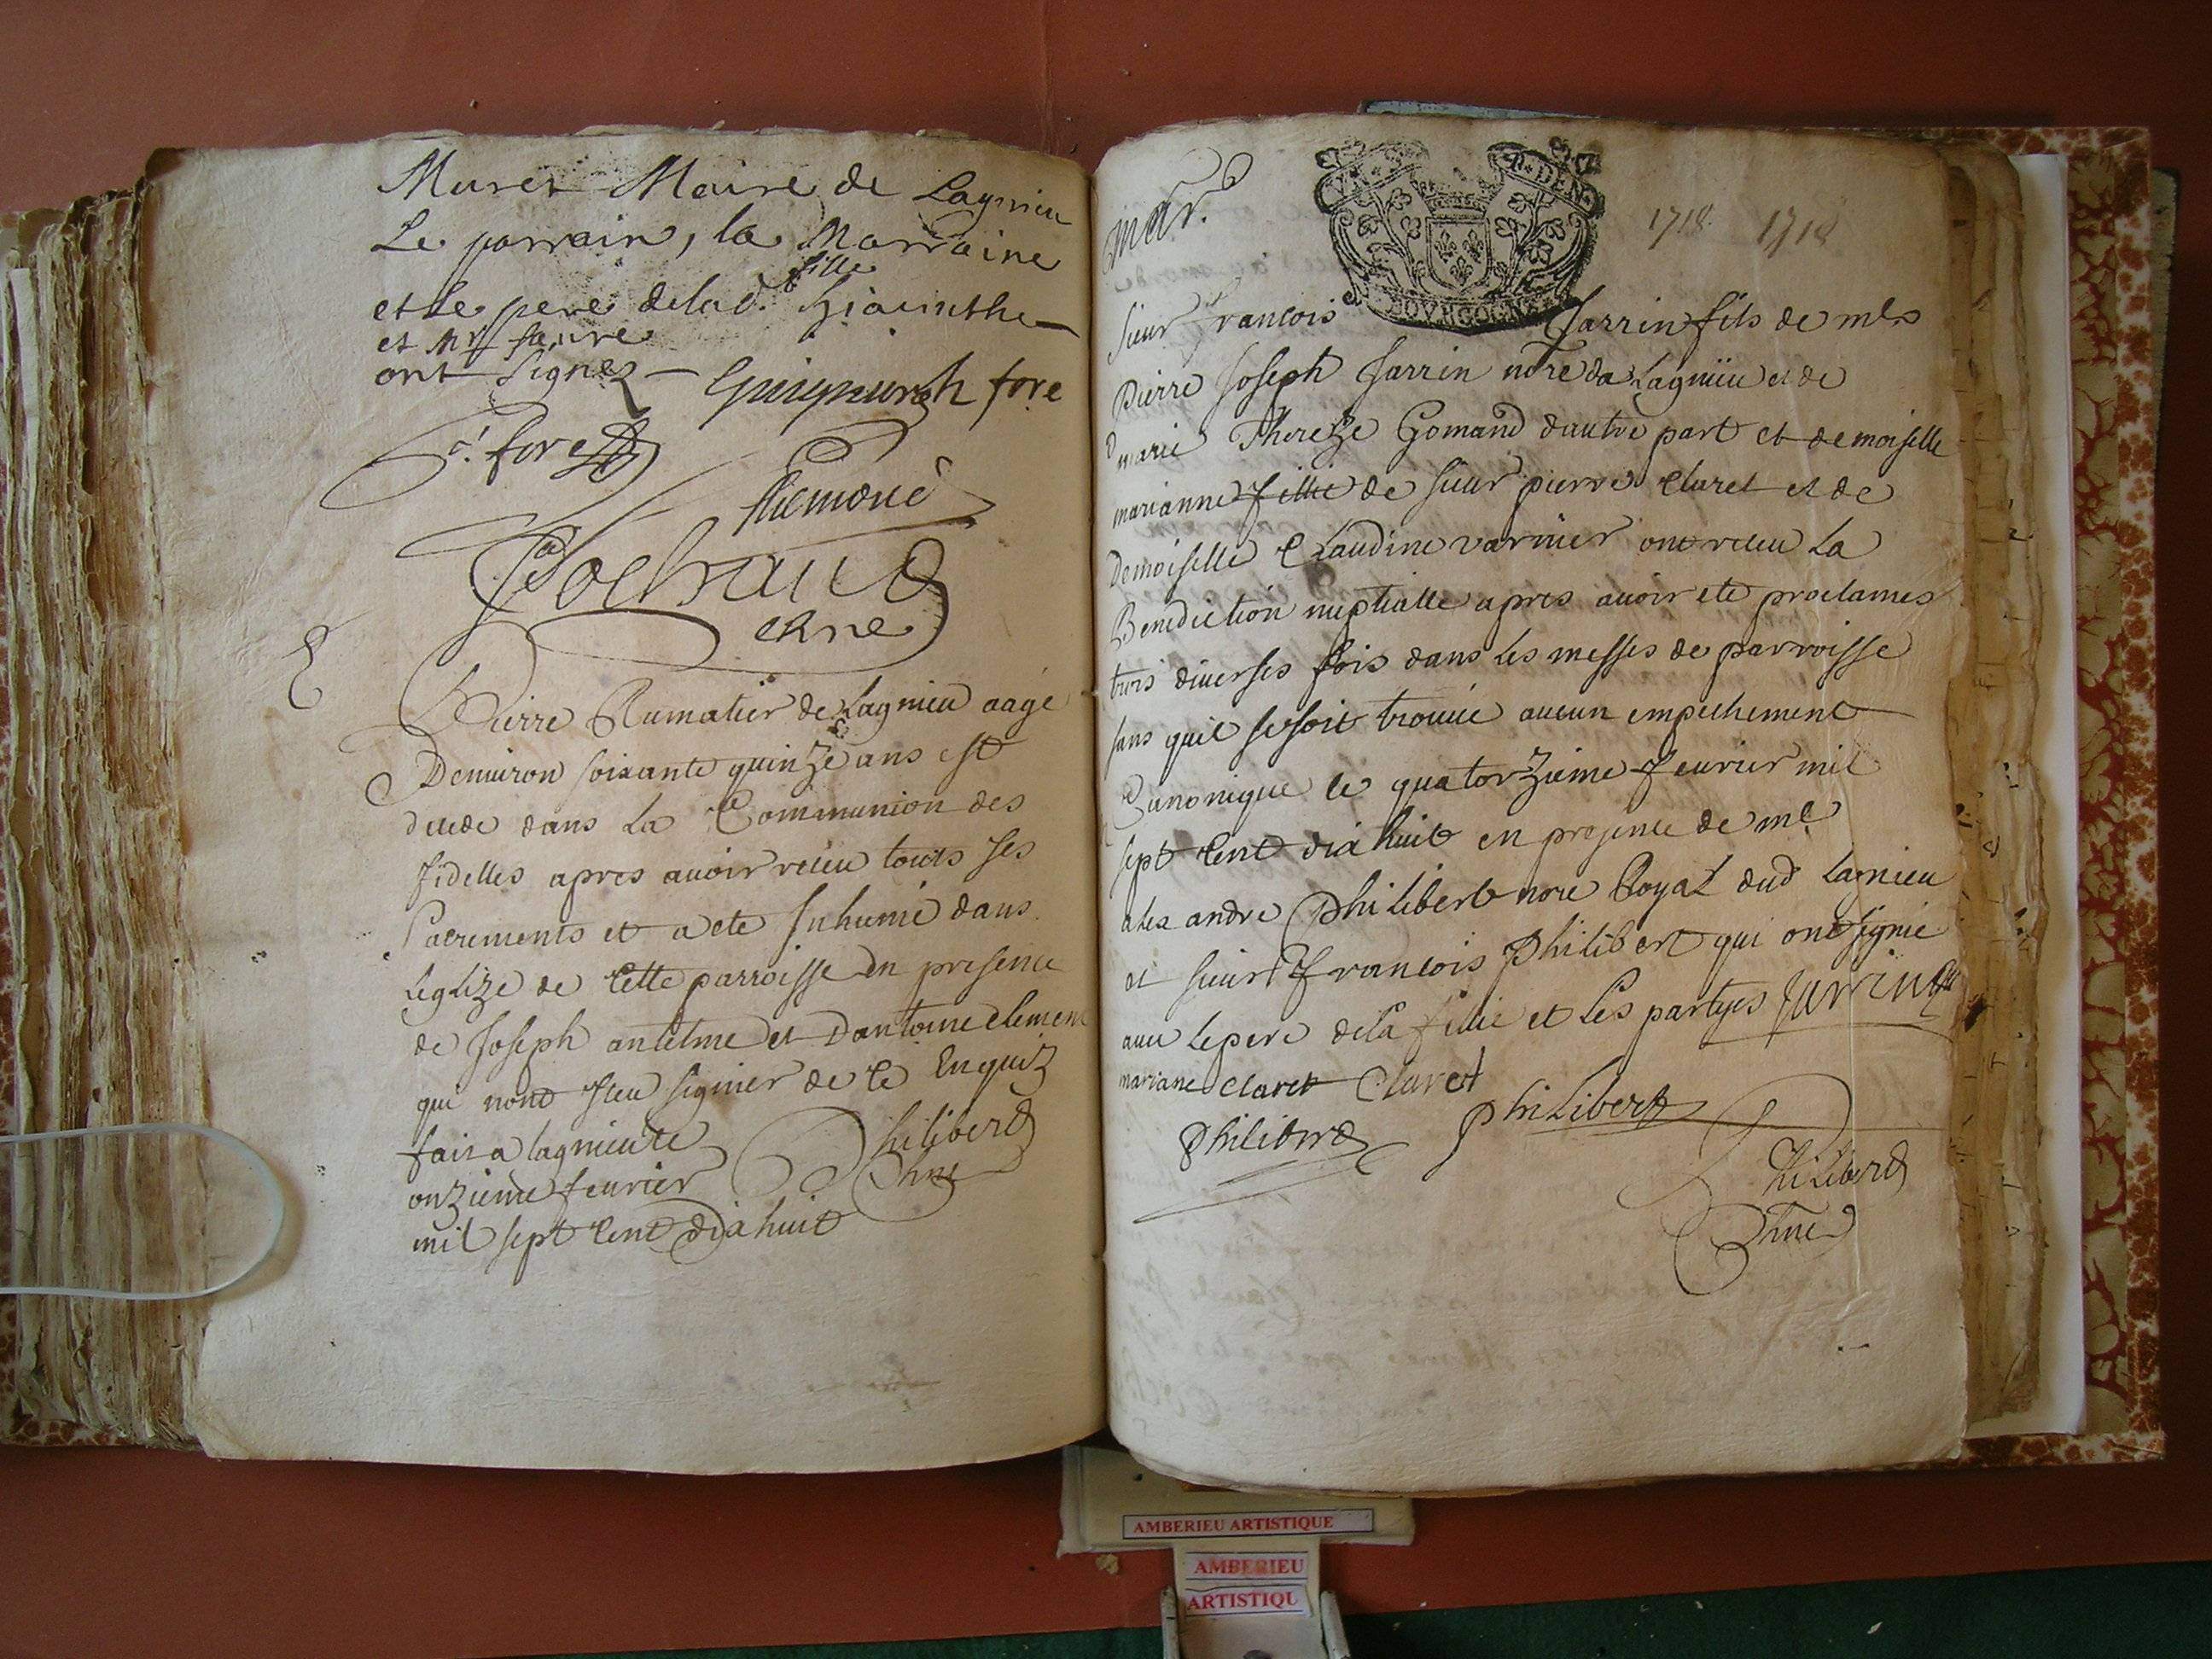 Muret Maire de Lagnieu
Le parrain, la Marraine
et le pere delad. fille hiacinthe
et Mr faivre
ont signez
fore
d. fore
Cochand
Pierre Rumatier de Lagnieu aagé
Denuiron soixante quinze ans est
decede dans La Communion des
fidelles apres auoir receu touts ses
Sacrements et a ete Inhumé dans
Leglize de Cette parroisse En presence
de Joseph antelme et Dantoine clement
qui nont sceu signier de ce Enquiz
fait a lagnieu le
onzieme feurier
mil sept Cent dixhuit
Philiberd
mar.
1718. 1718
BOVRGOGNE
sieur francois Jarrin fils de me
Pierre Joseph Jarrin nore de Lagnieu et de
marie Thereze Gomand dautre part et demoiselle
marianne fille de sieur pierre Claret et de
Demoiselle Claudine varnier ont receu La
Benediction nuptialle apres auoir ete proclames
trois diuerses fois dans Les messes de parroisse
sans quil se soit trouué aucun empechement
Canonique le quatorzieme feurier mil
sept Cent dixhuit en presence de me
alexandre Philibert nore Royal dud Lagnieu
et sieur francois Philibert qui ont signié
auec le pere de la fille et Les partyes Jarrin
mariane Claret Claret
Philiberd Philiberd
Philiberd
AMBERIEU ARTISTIQUE
AMBERIEU
ARTISTIQU